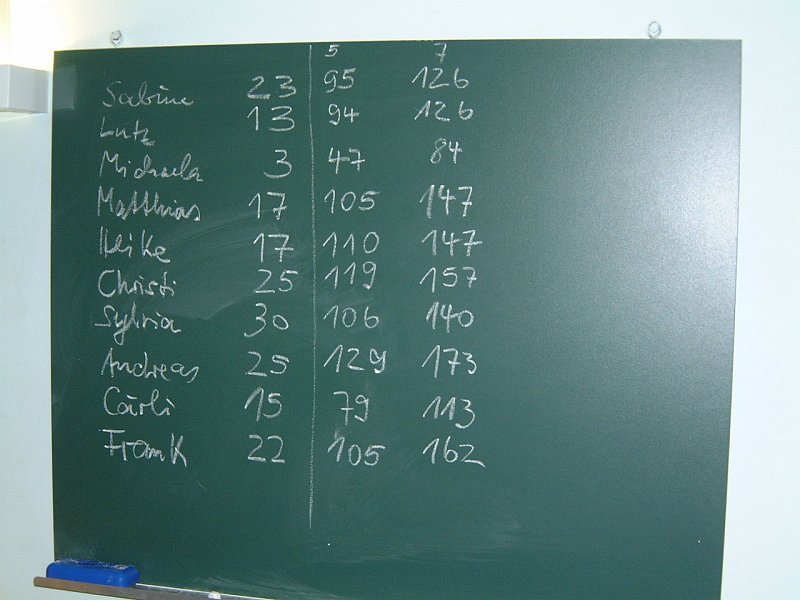 5 7
Sabine 23 95 126
Lutz 13 94 126
Michaela 3 47 84
Matthias 17 105 147
Heike 17 110 147
Christi 25 119 157
Sylvia 30 106 140
Andreas 25 129 173
Carli 15 79 113
Frank 22 105 162